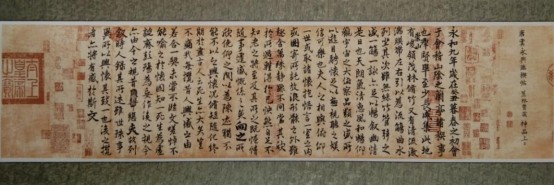 唐虞永興臨禊帖
神品上上
永和九年歲在癸丑暮春之初會
于會稽山陰之蘭亭脩禊事
也羣賢畢至少長咸集此地
有崇山峻領茂林脩竹又有清流激
湍暎帶左右引以為流觴曲水
列坐其次雖無絲竹管弦之
盛一觴一詠亦足以暢敘幽情
是日也天朗氣清惠風和暢仰
觀宇宙之大俯察品類之盛所
以遊目騁懷足以極視聽之娛
信可樂也夫人之相與俯仰
一世或取諸懷抱悟言一室之內
或因寄所託放浪形骸之外雖
趣舍萬殊靜躁不同當其欣
於所遇暫得於己快然自足不
知老之將至及其所之既惓情
隨事遷感慨係之矣向之所
欣俛仰之間以為陳迹猶不
能不以之興懷況脩短隨化終
期於盡古人云死生亦大矣豈
不痛哉每攬昔人興感之由
若合一契未嘗不臨文嗟悼不
能喻之於懷固知一死生為虛
誕齊彭殤為妄作後之視今
亦由今之視昔悲夫故列
敘時人錄其所述雖世殊事
異所以興懷其致一也後之攬
者亦將有感於斯文